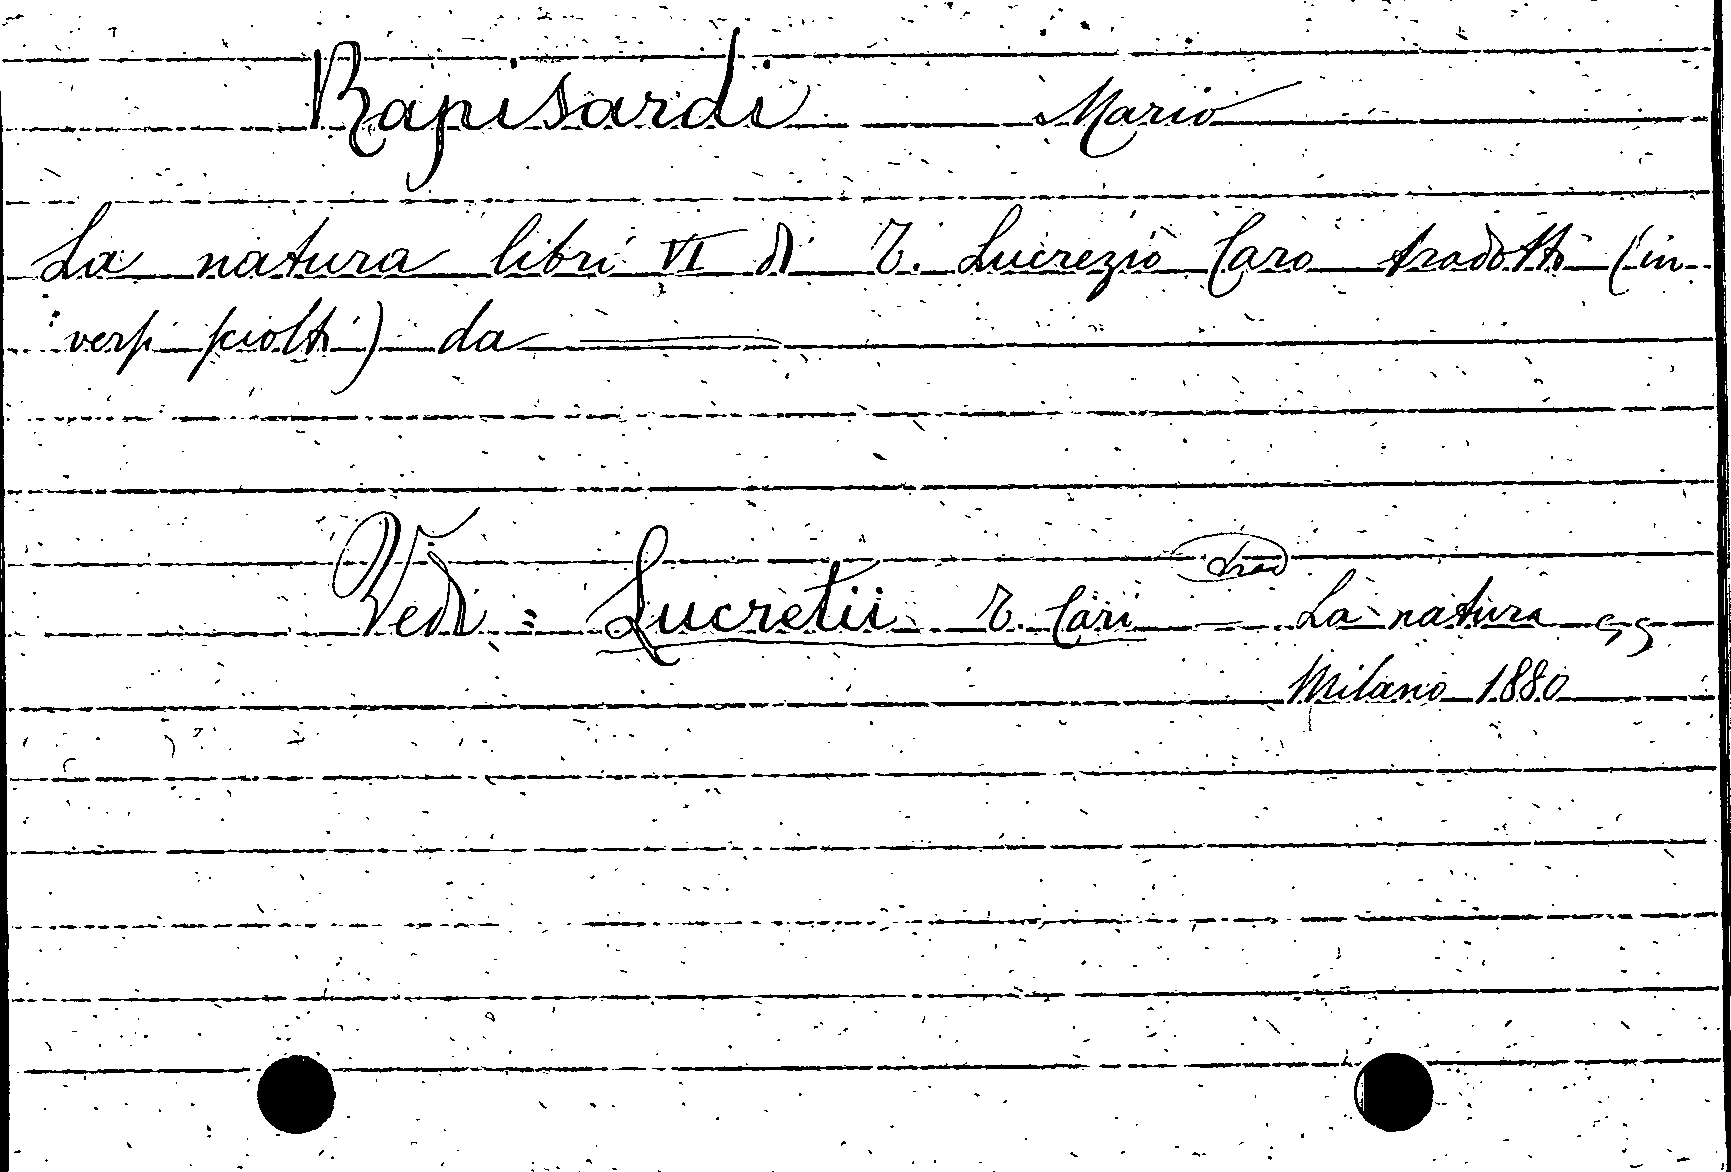 Rapisardi Mario
La natura libri VI di T. Lucrezio Caro tradotti (in
versi sciolti) da ———
Vedi: Lucretii T. Cari (trad) — La natura
Milano 1880